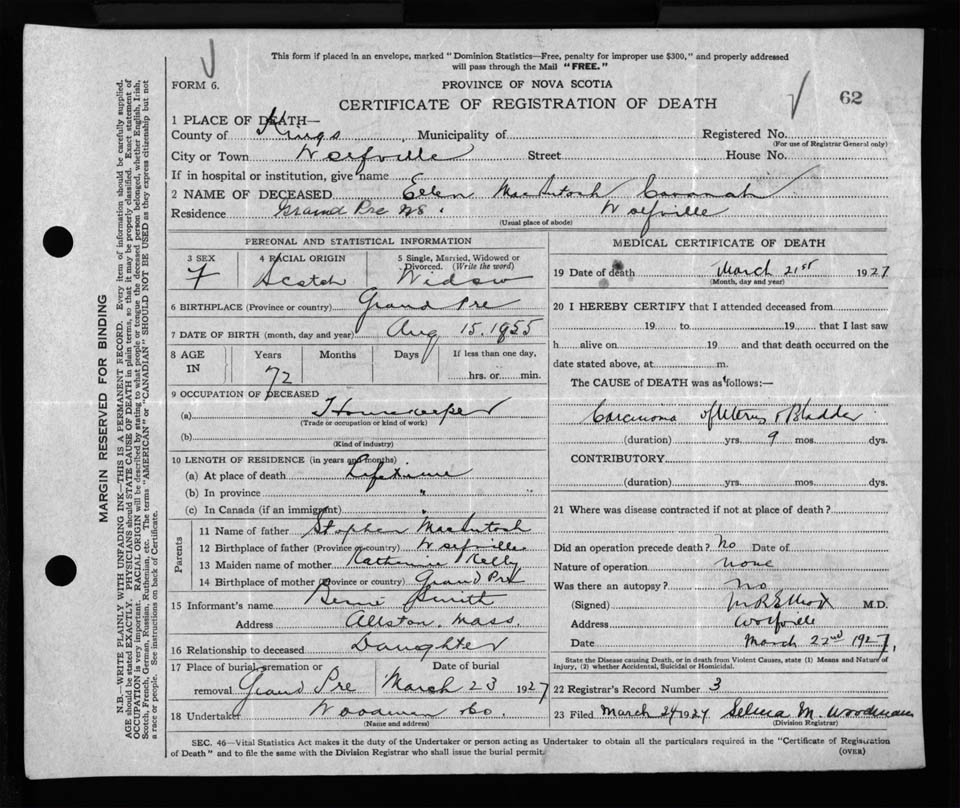 This form if placed in an envelope, marked "Dominion Statistics—Free, penalty for improper use $300," and properly addressed
will pass through the Mail "FREE."
FORM 6.
PROVINCE OF NOVA SCOTIA
CERTIFICATE OF REGISTRATION OF DEATH
62
1 PLACE OF DEATH—
County of Kings , Municipality of Registered No.
(For use of Registrar General only)
City or Town Wolfville Street House No.
If in hospital or institution, give name
2 NAME OF DECEASED Ellen MacIntosh Cavanah
Residence Grand Pre NS. Wolfville
(Usual place of abode)
PERSONAL AND STATISTICAL INFORMATION
3 SEX 4 RACIAL ORIGIN 5 Single, Married, Widowed or Divorced. (Write the word)
F Scotch Widow
6 BIRTHPLACE (Province or country) Grand Pre
7 DATE OF BIRTH (month, day and year) Aug 15. 1855
8 AGE IN Years Months Days If less than one day,
72 hrs. or min.
9 OCCUPATION OF DECEASED
(a) Housekeeper
(Trade or occupation or kind of work)
(b)
(Kind of industry)
10 LENGTH OF RESIDENCE (in years and months)
(a) At place of death Lifetime
(b) In province "
(c) In Canada (if an immigrant) " "
Parents
11 Name of father Stephen MacIntosh
12 Birthplace of father (Province or country) Wolfville
13 Maiden name of mother Katherine Kelly
14 Birthplace of mother (Province or country) Grand Pre
15 Informant's name Smith
Address Allston. Mass.
16 Relationship to deceased Daughter
17 Place of burial, cremation or Date of burial
removal Grand Pre March 23 1927
18 Undertaker Woodman & Co.
(Name and address)
MEDICAL CERTIFICATE OF DEATH
19 Date of death March 21st 1927
(Month, day and year)
20 I HEREBY CERTIFY that I attended deceased from
19 to 19 that I last saw
h alive on 19 and that death occurred on the
date stated above, at m.
The CAUSE of DEATH was as follows:—
Carcinoma of Uterus & Bladder
(duration) yrs. 9 mos. dys.
CONTRIBUTORY
(duration) yrs. mos. dys.
21 Where was disease contracted if not at place of death?
Did an operation precede death? No Date of
Nature of operation none
Was there an autopsy? No
(Signed) M.R. Elliott M.D.
Address Wolfville
Date March 22nd 1927.
State the Disease causing Death, or in death from Violent Causes, state (1) Means and Nature of
Injury, (2) whether Accidental, Suicidal or Homicidal.
22 Registrar's Record Number 3
23 Filed March 24 1927 Selina M. Woodman
(Division Registrar)
SEC. 46—Vital Statistics Act makes it the duty of the Undertaker or person acting as Undertaker to obtain all the particulars required in the "Certificate of Registration
of Death" and to file the same with the Division Registrar who shall issue the burial permit. (OVER)
MARGIN RESERVED FOR BINDING
N.B.—WRITE PLAINLY WITH UNFADING INK—THIS IS A PERMANENT RECORD. Every item of information should be carefully supplied.
AGE should be stated EXACTLY. PHYSICIANS should STATE CAUSE OF DEATH in plain terms, so that it may be properly classified. Exact statement of
OCCUPATION is very important. RACIAL ORIGIN will be described by stating to what people or tongue the deceased person belonged, whether English, Irish,
Scotch, French, German, Russian, Ruthenian, etc. The terms "AMERICAN" or "CANADIAN" SHOULD NOT BE USED as they express citizenship but not
a race or people. See instructions on back of Certificate.